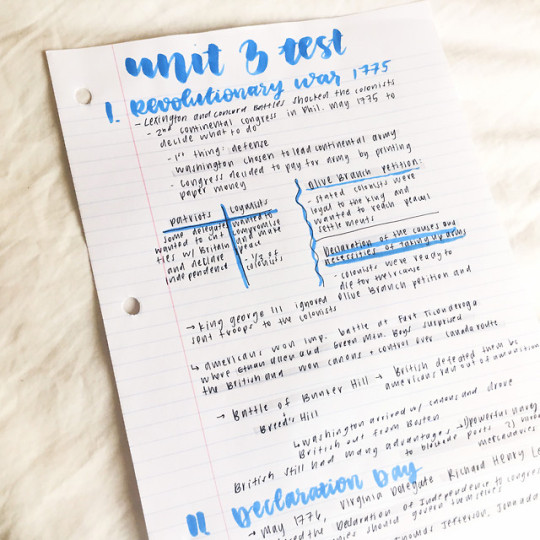 unit 3 test
I. Revolutionary War 1775
- Lexington and Concord Battles shocked the colonists
- 2nd Continental Congress in Phil. May 1775 to
decide what to do
- 1st thing: defense
Washington chosen to lead continental army
- Congress decided to pay for army by printing
paper money
Patriots
some delegates
wanted to cut
ties w/ Britain
and declare
independence
Loyalists
wanted to
compromise
and make
peace
- 1/3 of
colonists
Olive Branch Petition:
- stated colonists were
loyal to the king and
wanted to reach
settlements
Declaration of the causes and
necessities of taking up arms
- colonists were ready to
die for their cause
→ King George III ignored Olive Branch Petition and
sent troops to the colonists
↳ Americans won imp. battle at Fort Ticonderoga
where Ethan Allen and Green Mtn. Boys surprised
the British and won canons + control over Canada route
→ Battle of Bunker Hill → British defeated them bc
Americans ran out of
Breed's Hill
↳ Washington arrived w/ canons and drove
British out from Boston
British still had many advantages → 1) powerful navy
to blockade ports 2)
mercenaries
II. Declaration Day
→ May 1776, Virginia Delegate Richard Henry
Declaration of Independence to congress
should govern themselves
Thomas Jefferson,